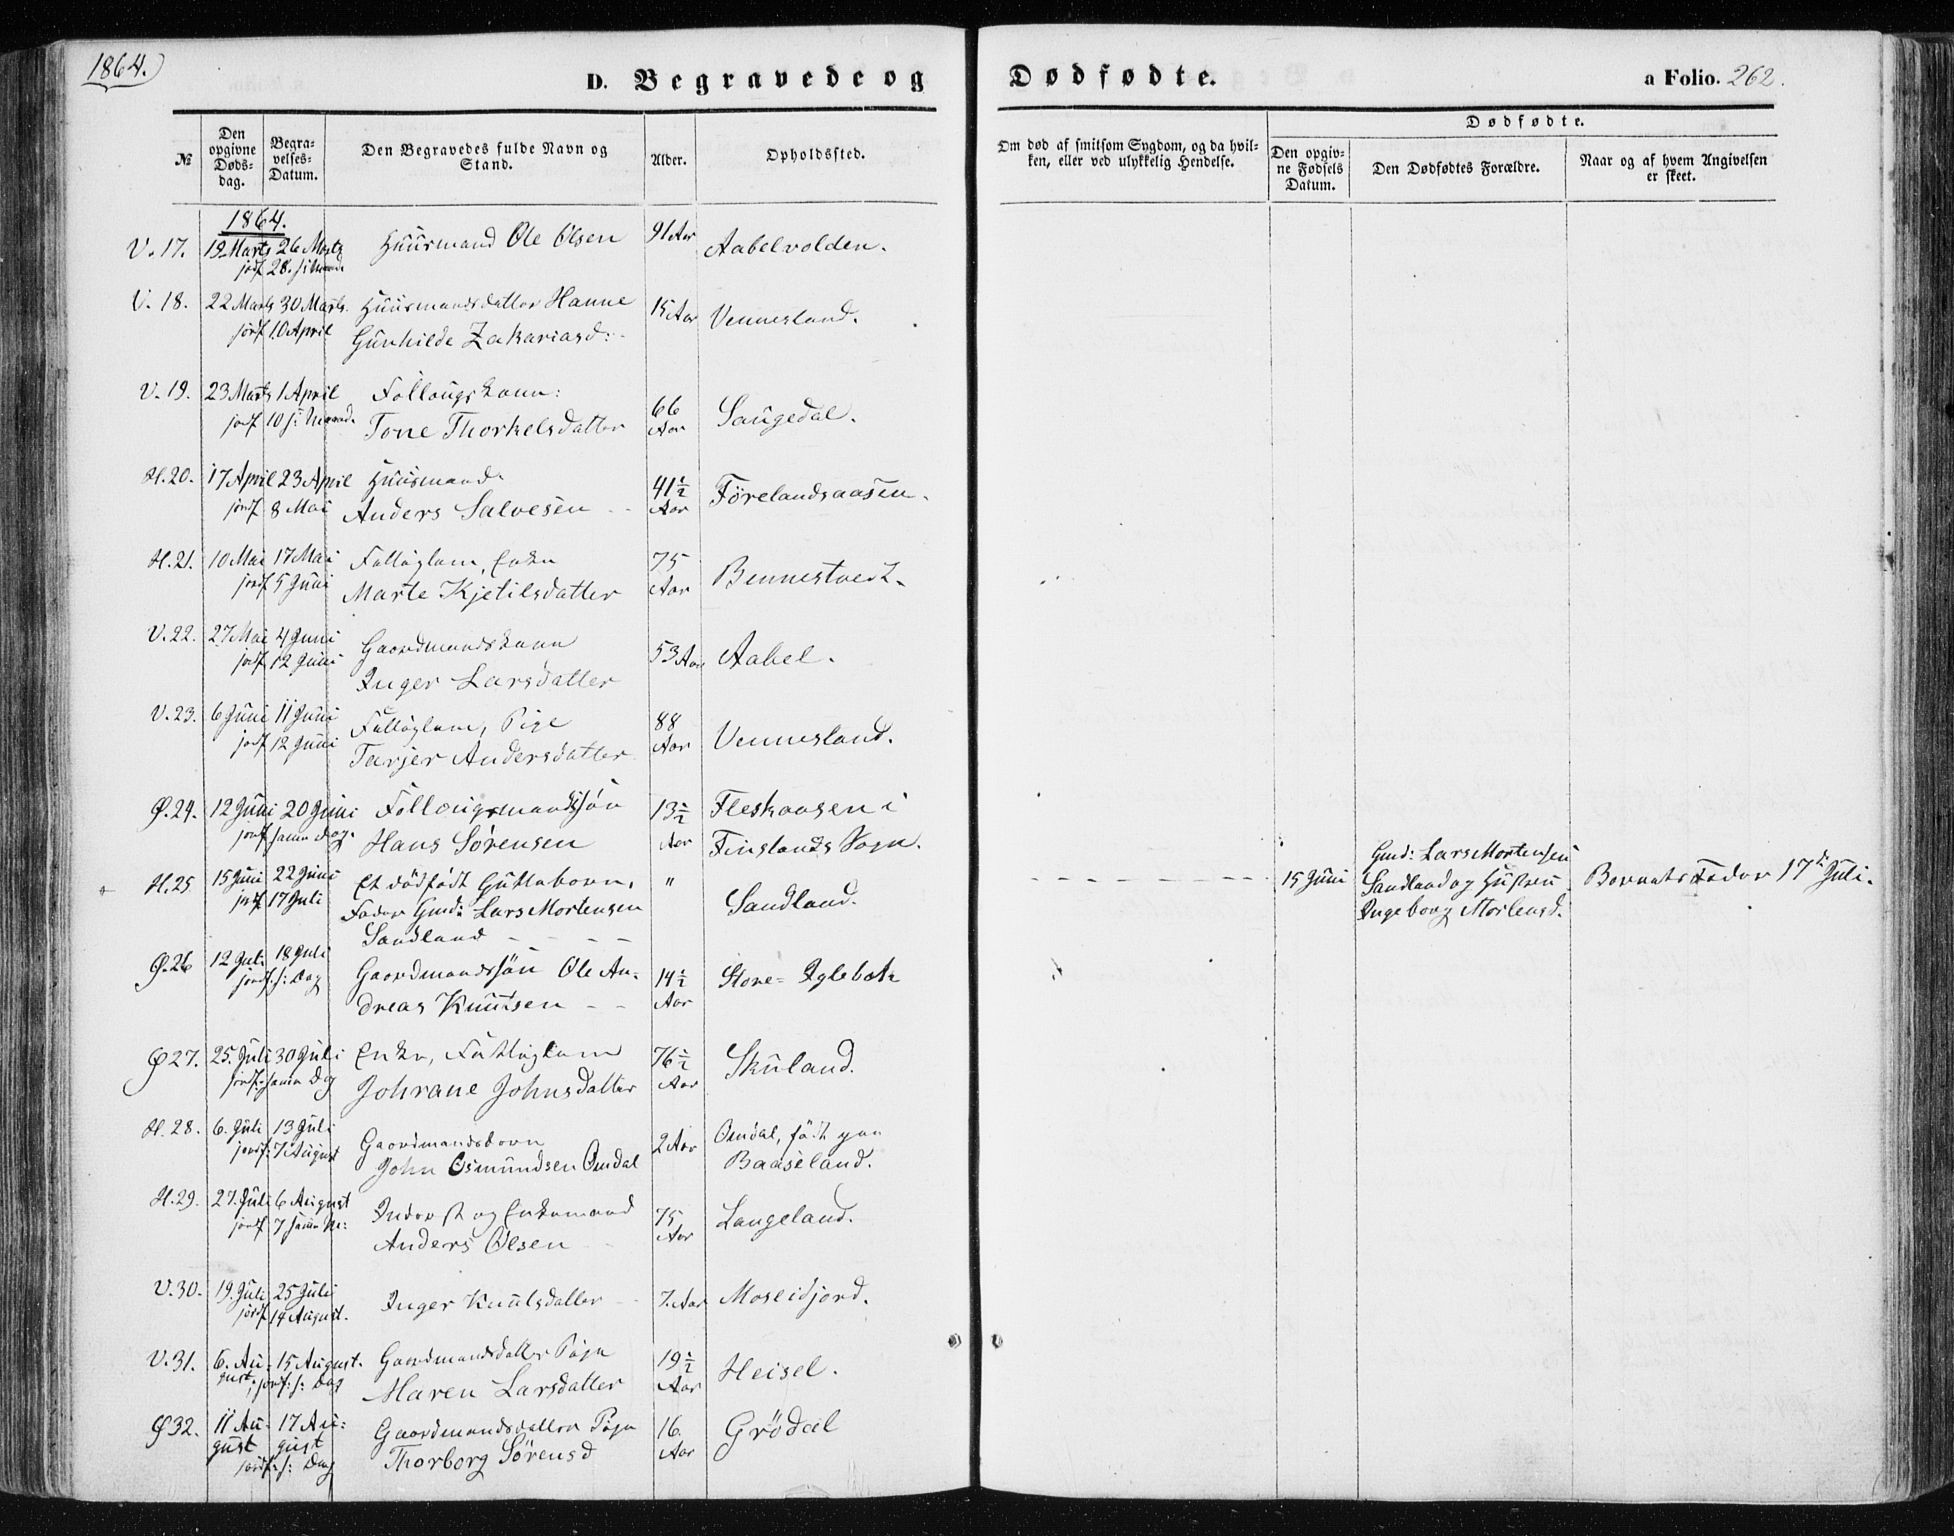 1864.
D. Begravede og Dødfødte.
a Folio. 262.
№
Den opgivne Døds-dag.
Begra-velses-Datum.
Den Begravedes fulde Navn og Stand.
Alder.
Opholdssted.
Om død af smitsom Sygdom, og da hvil-
ken, eller ved ulykkelig Hendelse.
Dødfødte.
Den opgiv-
ne Fødsels
Datum.
Den Dødfødtes Forældre.
Naar og af hvem Angivelsen
er skeet.
1864.
V. 17. 19 Marts 26 Marts Huusmand Ole Olsen 91 Aar Aabelvolden.
jordf 28.
V. 18. 22 Marts 30 Marts Huusmandsdatter Hanne 15 Aar Vennesland.
jordf 10 April Gunhilde Zakariasd:
V. 19. 23 Marts 1 April Follougskone: 66 Aar Saugedal.
jordf 10 Tone Thorkelsdatter
H. 20. 17 April 23 April Huusmand 41 1/2 Aar Førelandsaasen.
jordf 8 Mai Anders Salvesen
H. 21. 10 Mai 17 Mai Fattiglem, Enke 75 Aar Bennestvedt.
jordf 5 Juni Marte Kjetilsdatter
V. 22. 27 Mai 4 Juni Gaardmandskone 53 Aar Aabel.
jordf 12 Juni Inger Larsdatter
V. 23. 6 Juni 11 Juni Fattiglem, Pige 88 Aar Vennesland.
jordf 12 Juni Tarjer Andersdatter
Ø. 24. 12 Juni 20 Juni Follougsmandssøn 13 1/2 Aar Fleskaasen i
jordf samme Dag. Hans Sørensen Finslands Sogn.
H. 25 15 Juni 22 Juni Et dødfødt Guttebarn, " Sandland.
jordf 17 Juli Fader Gmd: Lars Mortensen
Sandland
15 Juni Gmd: Lars Mortensen
Sandland og Hustru
Ingeborg Mortensd.
Barnets Fader 17de Juli.
Ø. 26 12 Juli 18 Juli Gaardmandssøn Ole An- 14 1/2 Aar Store-Iglebæk
jordf. s: Dag dreas Knutsen
Ø 27. 25. Juli 30 Juli Enke, Fattiglem 76 1/2 Aar Skuland.
jordf. samme Dag Johrane Johnsdatter
H. 28. 6. Juli 13 Juli Gaardmandsbarn 2 Aar Omdal, født paa
jordf: 7 August John Osmundsen Omdal Baaseland.
H. 29. 27. Juli 6 August Inderst og Enkemand 75 Aar Langeland.
jordf 7 samme M: Anders Olsen
V. 30. 19. Juli 25 Juli Inger Knutsdatter 7. Aar Moseidjord.
jordf 14 August.
V. 31. 6. Au- 15 August. Gaardmandsdatter Pige 19 1/2 Aar Heisel.
gust, jordf: s: Dag Maren Larsdatter
Ø 32. 11 Au- 17 Au: Gaardmandsdatter Pige 16. Aar Grödal
gust gust Thorborg Sørensd
jordf: s: Dag